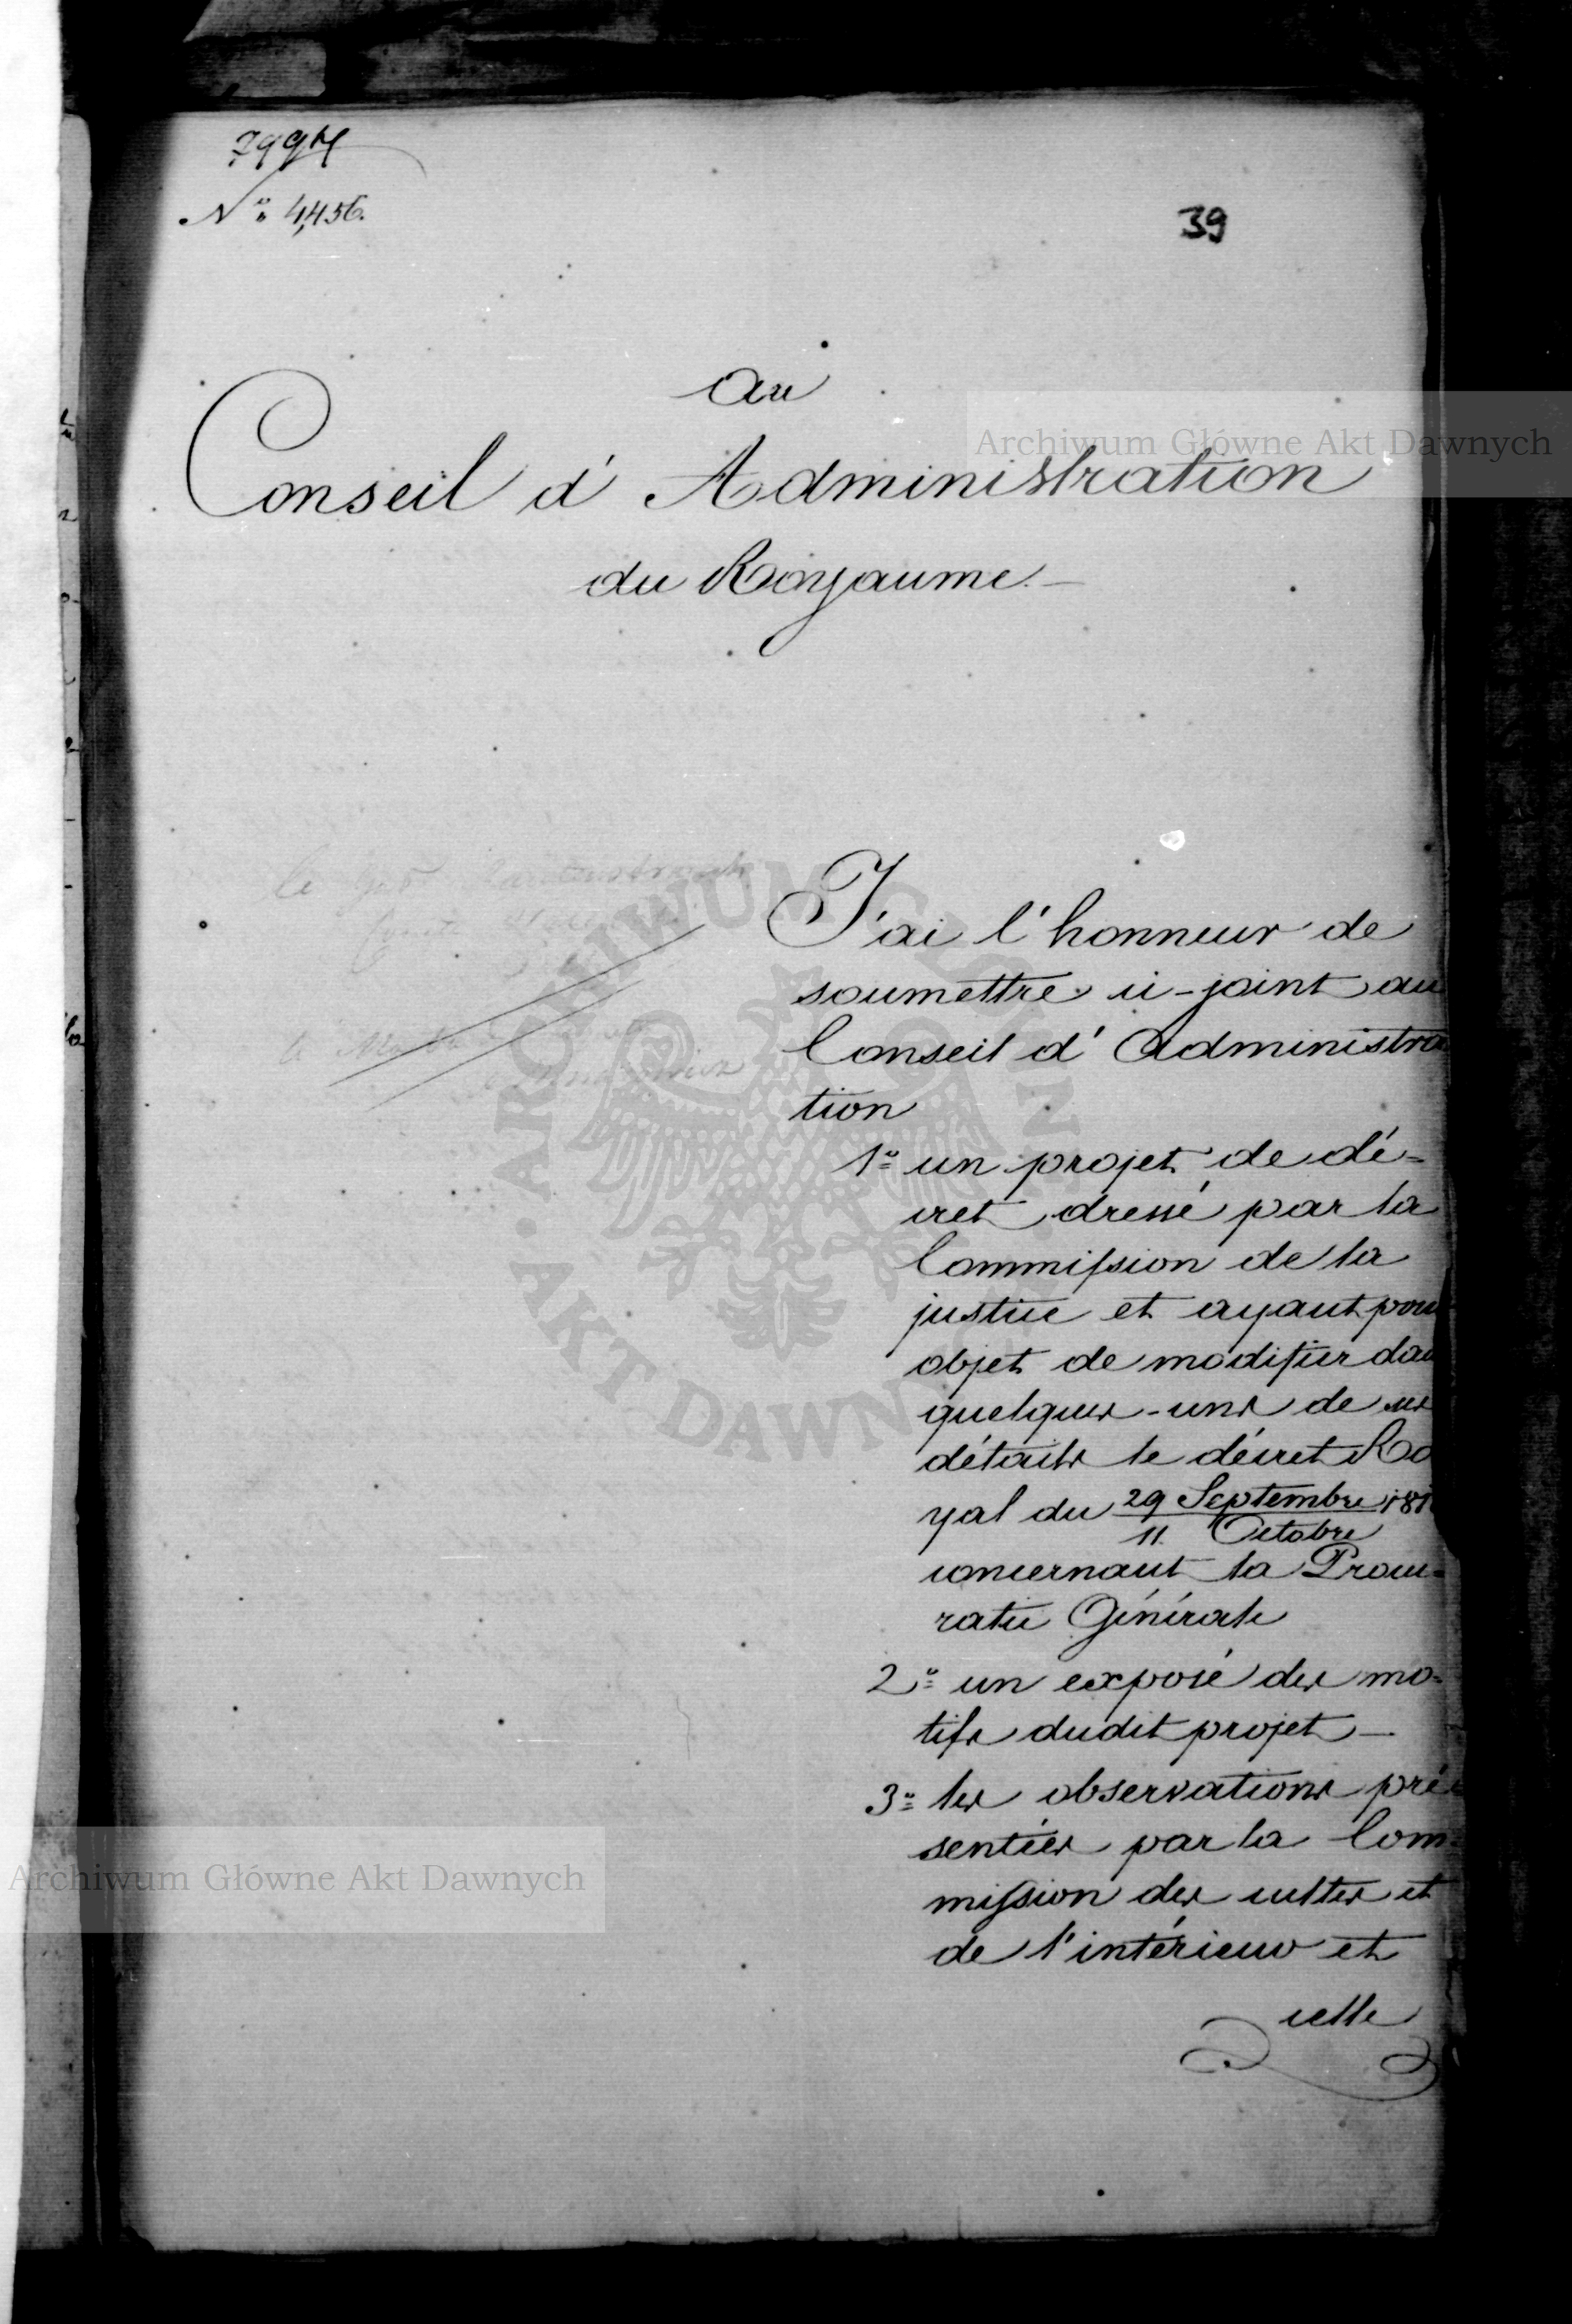 7994
Nº 4,456.
39
Au
Conseil d'Administration
du Royaume.—
Archiwum Główne Akt Dawnych
J'ai l'honneur de
soumettre ci-joint au
Conseil d'Administra
tion
1º un projet de dé-
cret dressé par la
Commission de la
justice et ayant pour
objet de modifier dan
quelques-uns de ses
détails le décret Ro
yal du 29 Septembre 181
11. Octobre
concernant la Procu-
ratie Générale
2º un exposé des mo-
tifs dudit projet —
3º les observations pré-
sentées par la Com-
mission des cultes et
de l'intérieur et
celle
Archiwum Główne Akt Dawnych
ARCHIWUM GŁÓWNE
AKT DAWNYCH